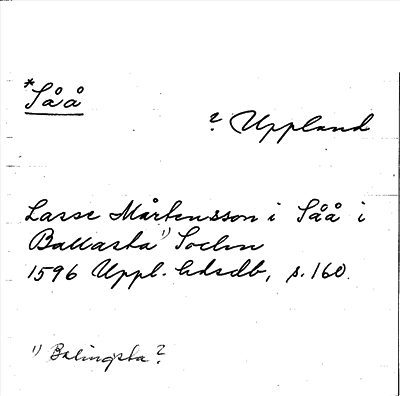 *Såå
? Uppland
Lasse Mårtensson i Såå i
Ballasta ¹⁾ Sochn
1596 Uppl. hdsdb, s. 160.
¹⁾ Balingsta?